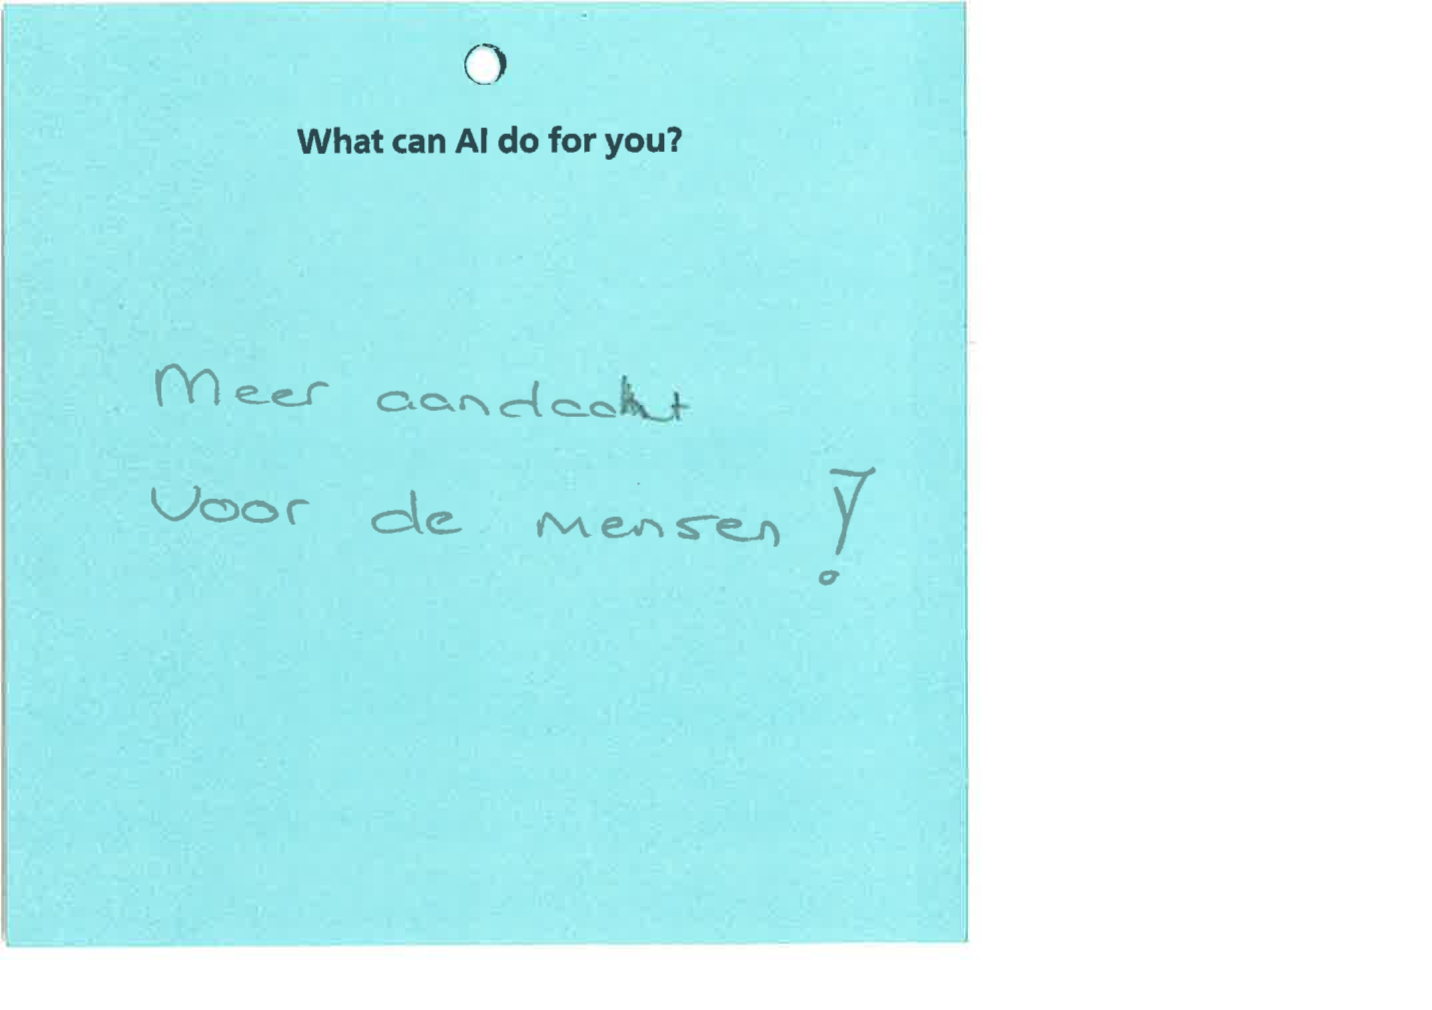 What can AI do for you?
Meer aandacht
voor de mensen!